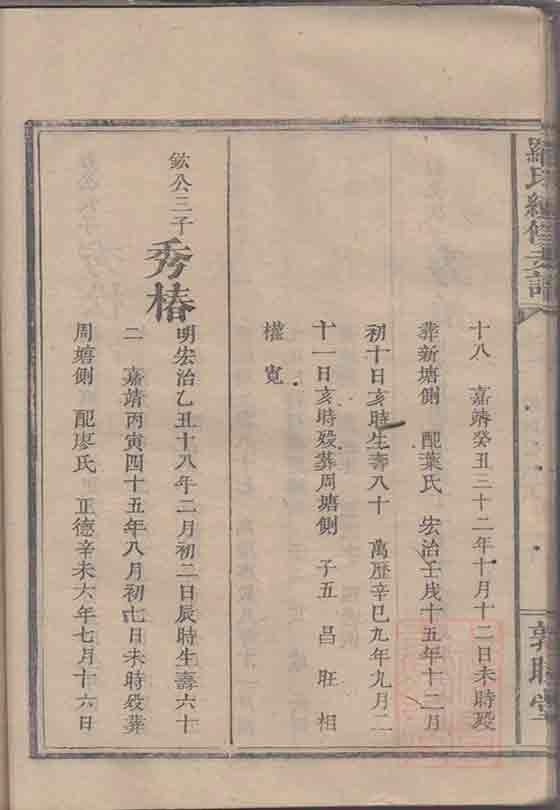 羅氏續修支譜
敦睦堂
十八 嘉靖癸丑三十二年十月十二日未時殁
葬新塘側 配葉氏 宏治壬戌十五年十二月
初十日亥時生壽八十 萬歷辛巳九年九月二
十一日亥時殁葬周塘側 子五 昌 旺 相
權 寬
鈜公三子
秀椿
明宏治乙丑十八年二月初二日辰時生壽六十
二 嘉靖丙寅四十五年八月初七日未時殁葬
周塘側 配廖氏 正德辛未六年七月十六日